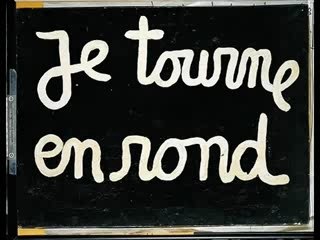 Je tourne
en rond